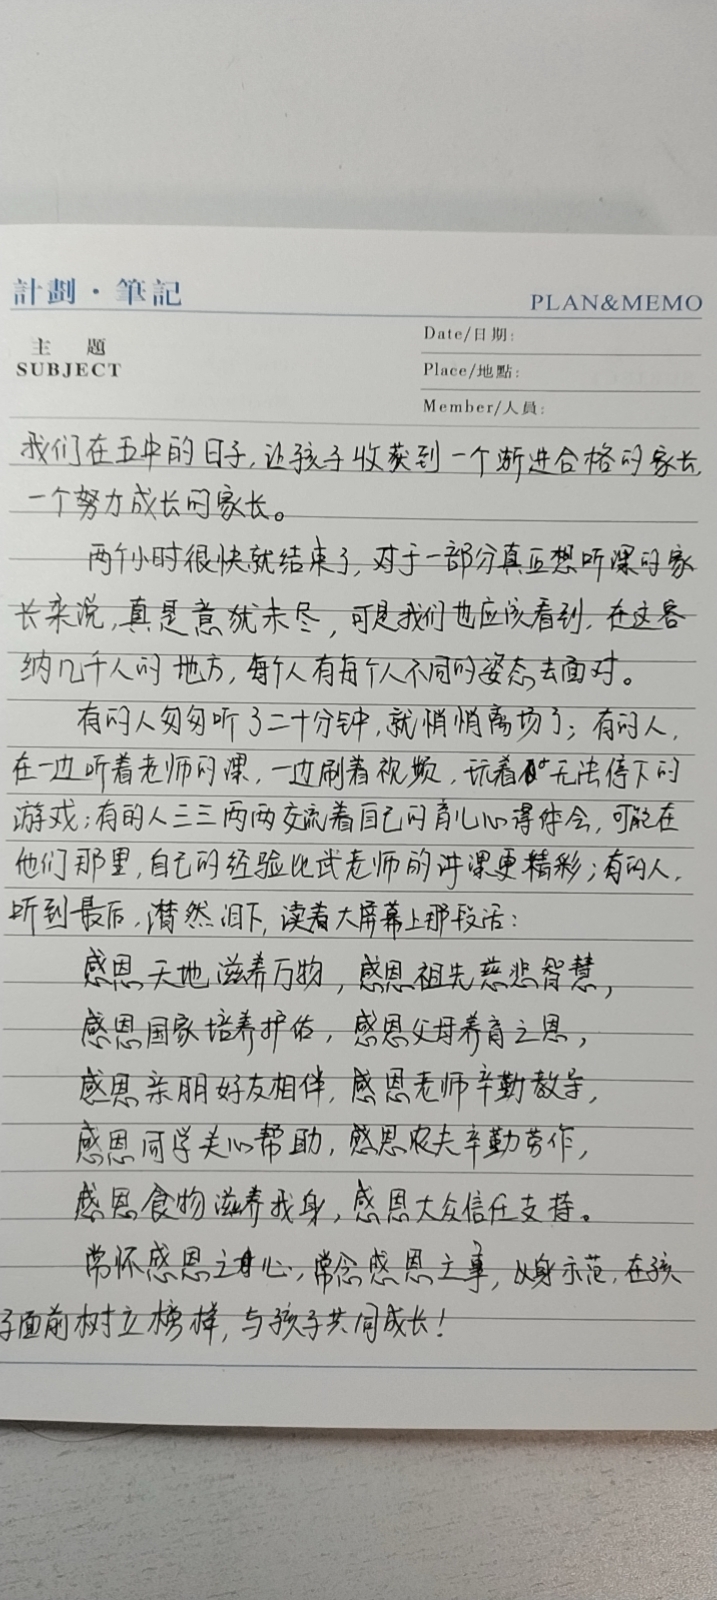 計劃·筆記
PLAN&MEMO
主 題
SUBJECT
Date/日期:
Place/地點:
Member/人員:
我们在五中的日子,让孩子收获到一个渐进合格的家长,
一个努力成长的家长。
两个小时很快就结束了,对于一部分真正想听课的家
长来说,真是意犹未尽,可是我们也应该看到,在这容
纳几千人的地方,每个人有每个人不同的姿态去面对。
有的人匆匆听了二十分钟,就悄悄离场了;有的人,
在一边听着老师的课,一边刷着视频,玩着无法停下的
游戏;有的人三三两两交流着自己的育儿心得体会,可能在
他们那里,自己的经验比武老师的讲课更精彩;有的人,
听到最后,潸然泪下,读着大屏幕上那段话:
感恩天地滋养万物,感恩祖先慈悲智慧,
感恩国家培养护佑,感恩父母养育之恩,
感恩亲朋好友相伴,感恩老师辛勤教导,
感恩同学关心帮助,感恩农夫辛勤劳作,
感恩食物滋养我身,感恩大众信任支持。
常怀感恩之心,常念感恩之事,以身示范,在孩
子面前树立榜样,与孩子共同成长!